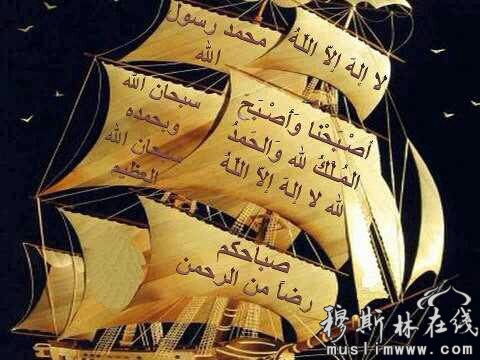 لا إلهَ إلاّ اللهُ
محمد رسول
الله
سبحان الله
وبحمده
سبحان الله
العظيم
أصْبَحْنا وَأصْبَحَ
المُلْكُ لله وَالحَمدُ
لله لا إلهَ إلاّ اللهُ
صباحكم
رضأ من الرحمن
穆斯林在线
muslimwww.com